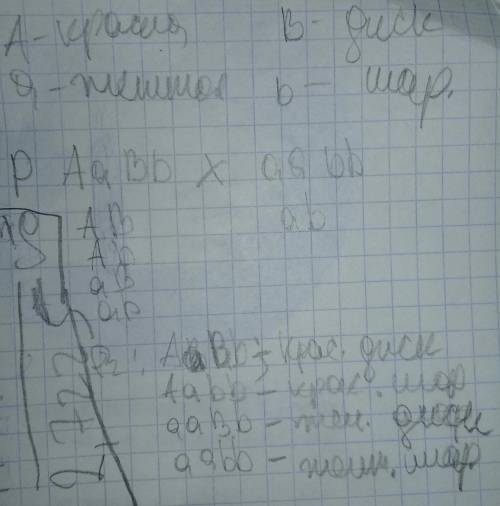 А - красная B - диск
а - желтая b - шар.
P AaBb x aabb
AB ab
Ab
aB
ab
AaBb - крас. диск
Aabb - крас. шар
aaBb - жел. диск
aabb - желт. шар.